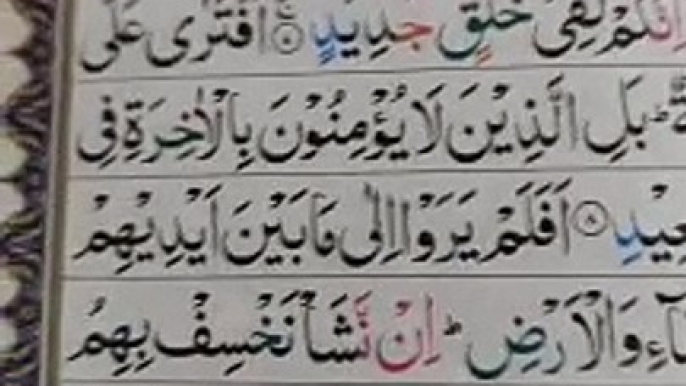 اِنَّكُمْ لَفِىْ خَلْقٍ جَدِيْدٍ ۚ اَفْتَرٰى عَلَى
بَلِ الَّذِيْنَ لَا يُؤْمِنُوْنَ بِالْاٰخِرَةِ فِى
۸ اَفَلَمْ يَرَوْا اِلٰى مَا بَيْنَ اَيْدِيْهِمْ
وَالْاَرْضِ ؕ اِنْ نَّشَاْ نَخْسِفْ بِهِمُ